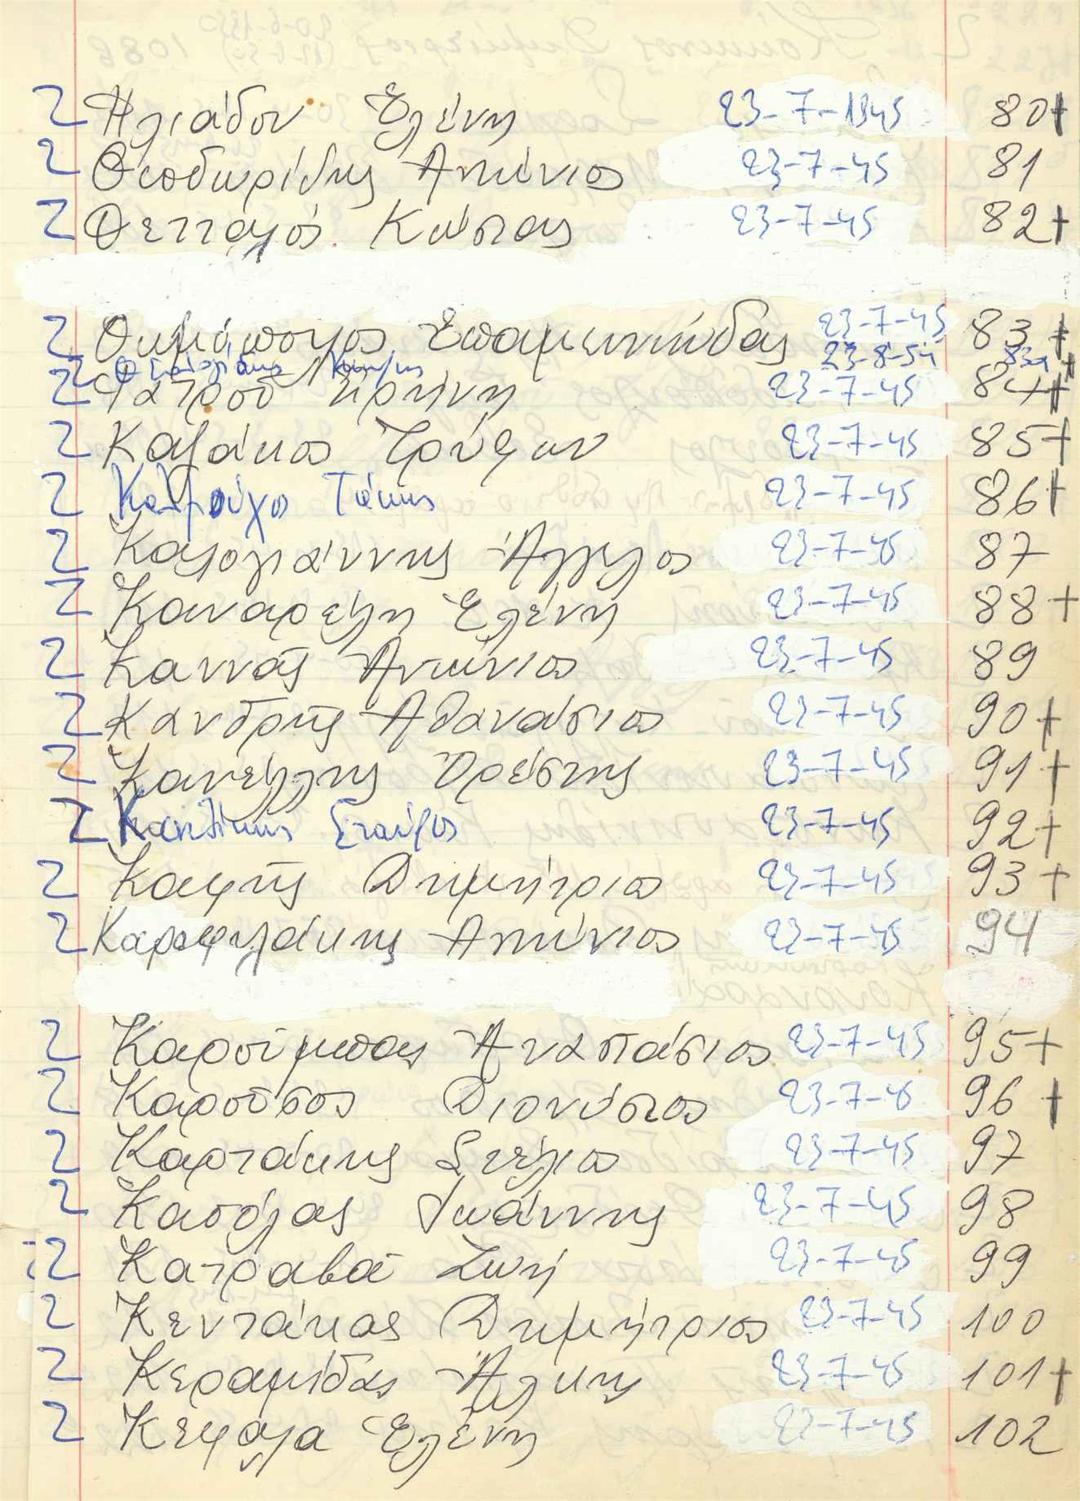 2 Ηλιάδου Ελένη 23-7-1945 80+
2 Θεοδωρίδης Αντώνιος 23-7-45 81
2 Θετταλός Κώστας 23-7-45 82+
2 Θυμόπουλος Επαμεινώνδας 23-7-45 83+
2 23-8-54 83α+
2 Ιατρού Ειρήνη 23-7-45 84+
2 Καζάκος Τρύφων 23-7-45 85+
2 Τάκης 23-7-45 86+
2 Καλογιάννης Άγγελος 23-7-45 87
2 Καναρέλη Ελένη 23-7-45 88+
2 Καννάς Αντώνιος 23-7-45 89
2 Κανδρής Αθανάσιος 23-7-45 90+
2 Κανέλλης Ορέστης 23-7-45 91+
2 Σταύρος 23-7-45 92+
2 Καφής Δημήτριος 23-7-45 93+
2 Καροφυλάκης Αντώνιος 23-7-45 94
2 Καρούμπας Αναστάσιος 23-7-45 95+
2 Καρούσος Διονύσιος 23-7-45 96+
2 Καρτάκης Στέλιος 23-7-45 97
2 Κασόλας Ιωάννης 23-7-45 98
2 Κατραβά Ζωή 23-7-45 99
2 Κεντάκας Δημήτριος 23-7-45 100
2 Κεραμίδας Άλκης 23-7-45 101+
2 Κεφαλα Ελένη 23-7-45 102